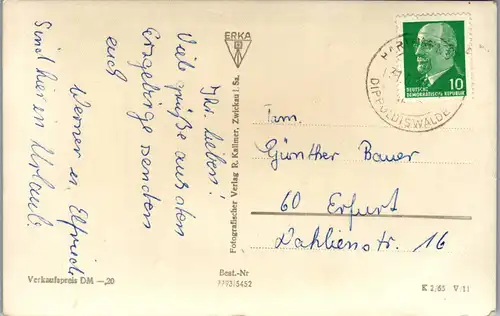 Ihr lieben!
Viele Grüße aus dem
Erzgebirge senden
euch
Werner u. Elfriede
Sind hier in Urlaub.
Verkaufspreis DM —,20
ERKA
Fotografischer Verlag R. Kallmer, Zwickau i. Sa.
Best.-Nr
7793/5452
DIPPOLDISWALDE
10
DEUTSCHE
DEMOKRATISCHE REPUBLIK
Fam.
Günther Bauer
60 Erfurt
Dahlienstr. 16
K 2/65 V/11